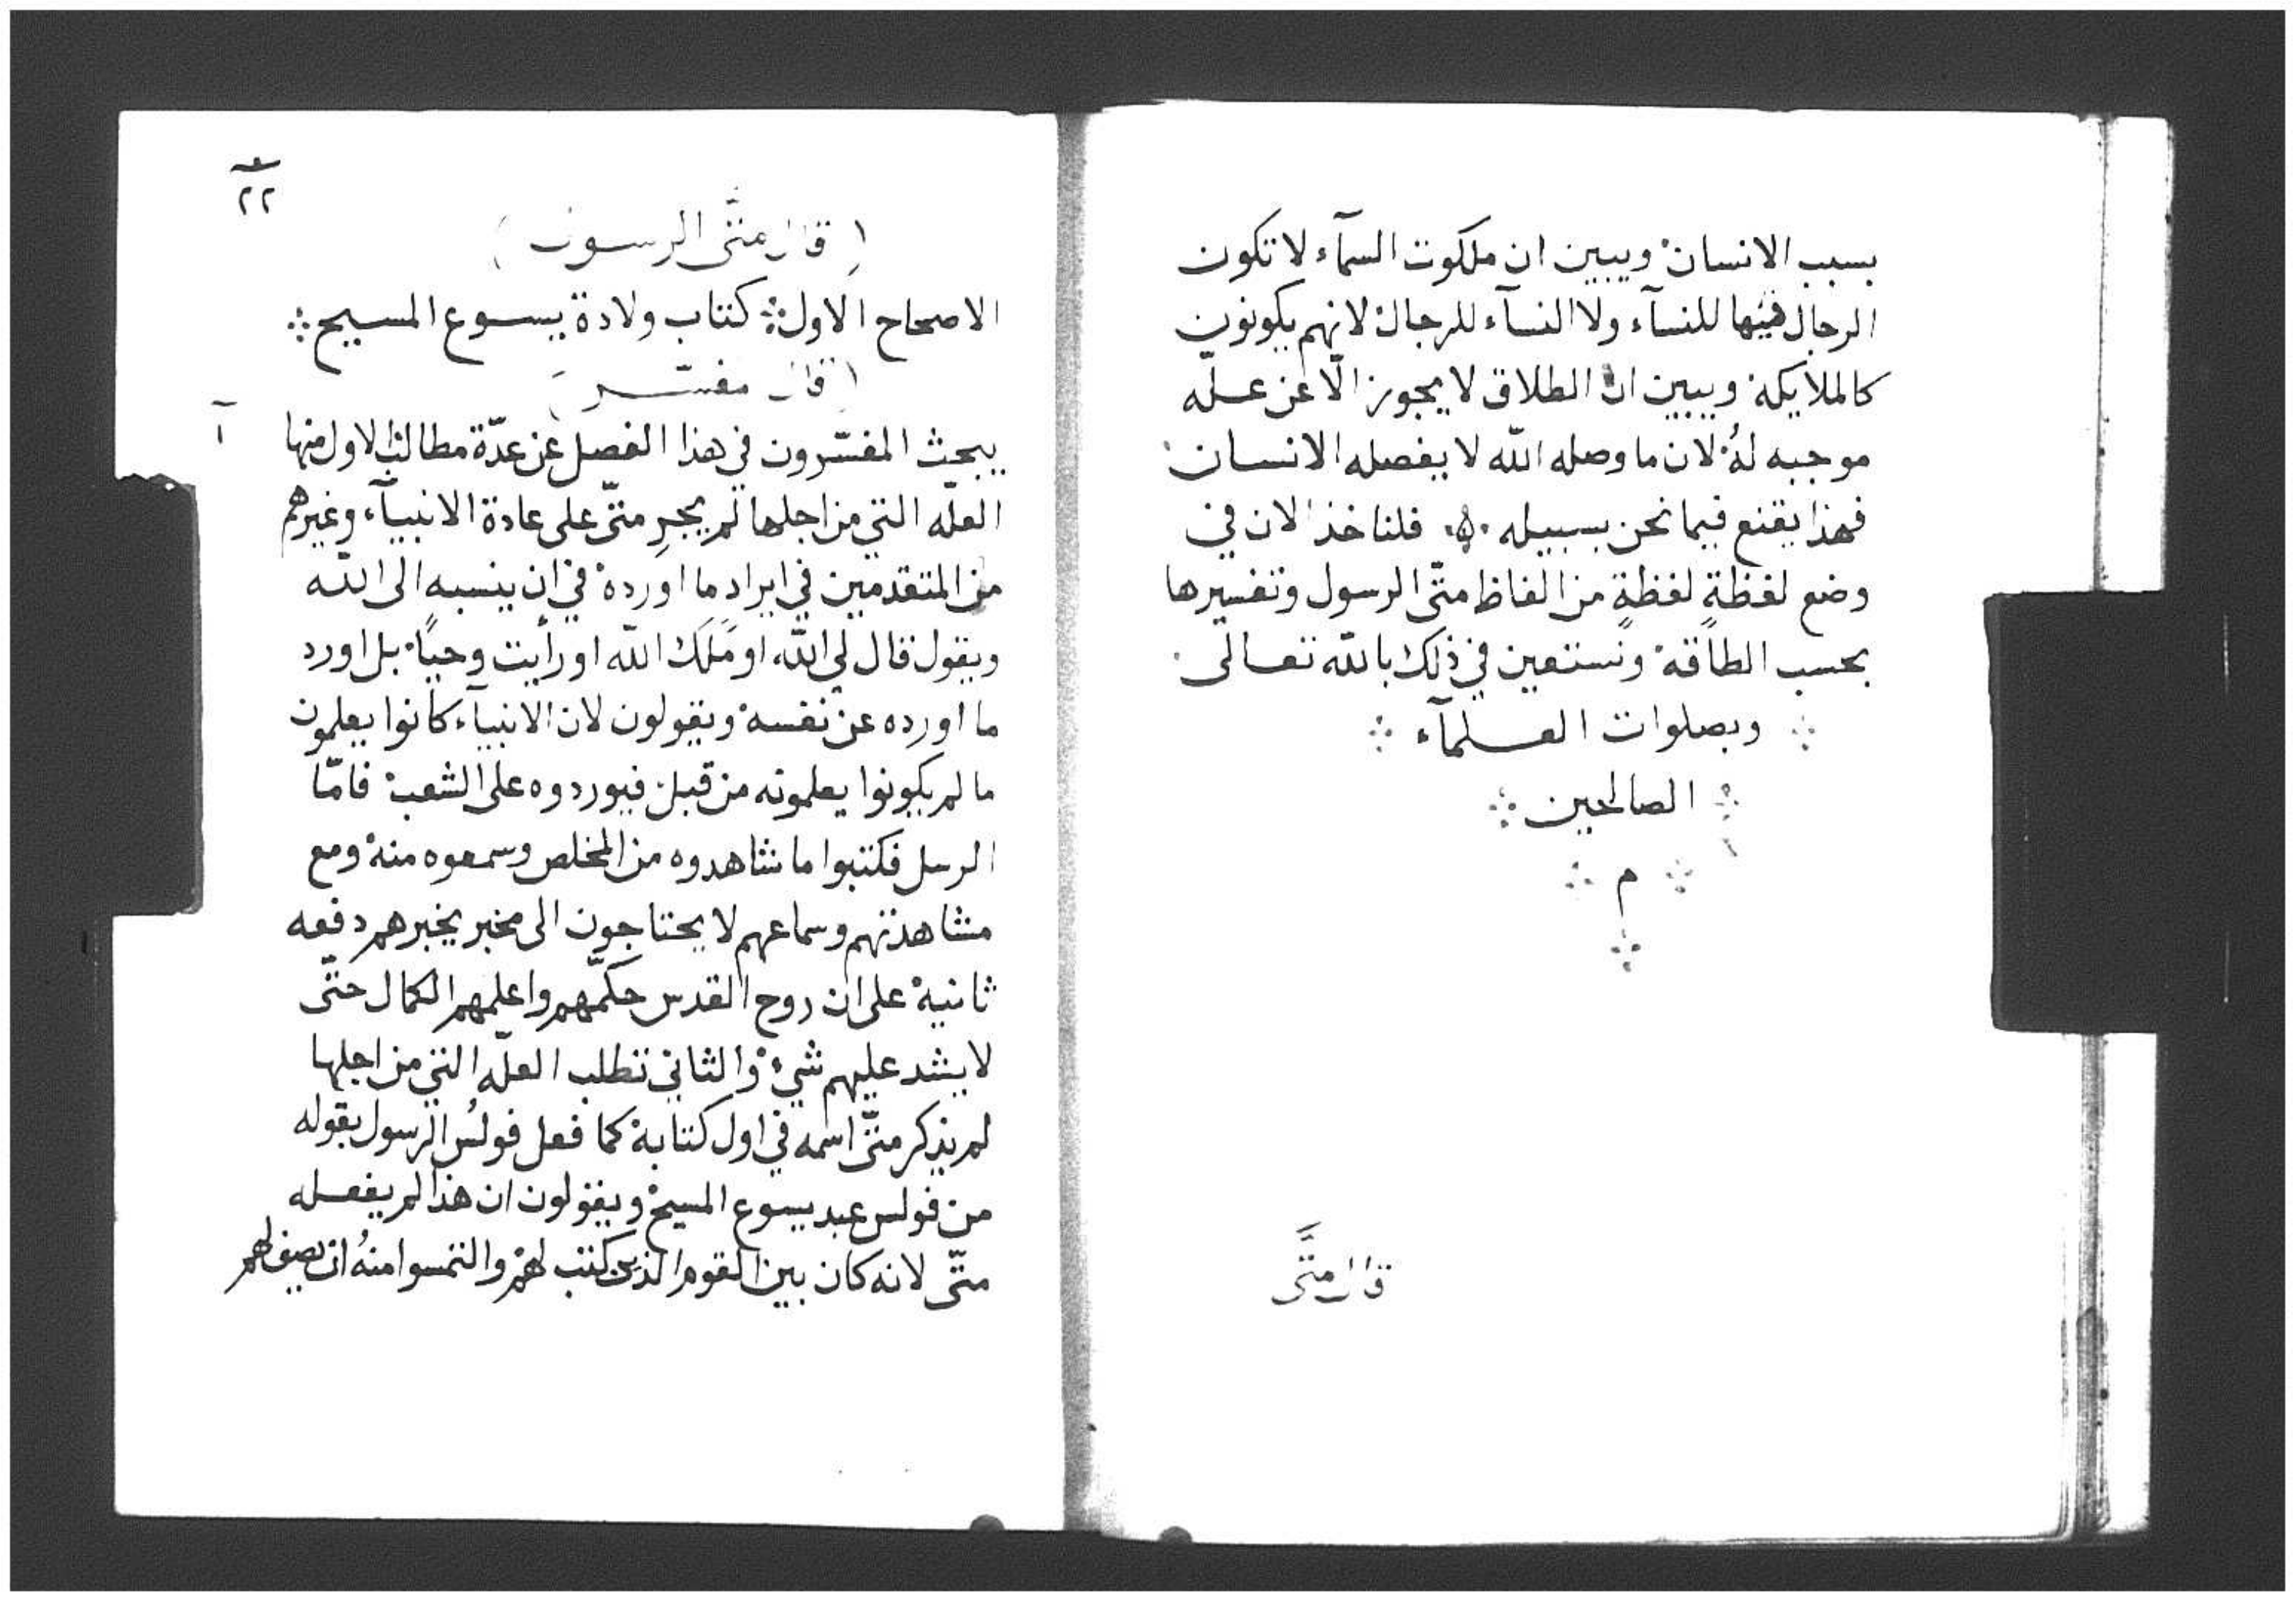 بسبب الانسان ويبين ان ملكوت السمآء لا تكون
الرجال فيها للنسآء ولا النسآء للرجال لانهم يكونون
كالملايكة ويبين ان الطلاق لا يجوز الّا عن علّه
موجبه لهُ لان ما وصله اللّه لا يفصله الانسان
فهذا يقنع فيما نحن بسبيله ۞ فلناخذ الان في
وضع لفظةٍ لفظةٍ من الفاظ متّى الرسول وتفسيرها
بحسب الطاقة ونستعين في ذلك باللّه تعالى
وبصلوات العلمآء
الصالحين
م
قال متَّى
٢٢
(قال متَّى الرسول)
الاصحاح الاول ܀ كتاب ولادة يسوع المسيح ܀
(قال مفسّر)
آ
يبحث المفسّرون في هذا الفصل عن عدّة مطالب الاول منها
العلّه التي من اجلها لم يجرِ متّى على عادة الانبيآء وغيرهم
من المتقدمين في ايراد ما اورده في ان ينسبه الى اللّه
ويقول قال لي اللّه او مَلَك اللّه او رأيت وحيًا بل اورد
ما اورده عن نفسه ويقولون لان الانبيآء كانوا يعلمون
ما لم يكونوا يعلمونه من قبل فيوردوه على الشعب فامّا
الرسل فكتبوا ما شاهدوه من المخلص وسمعوه منه ومع
مشاهدتهم وسماعهم لا يحتاجون الى مخبر يخبرهم دفعه
ثانية على ان روح القدس حكّمهم واعلمهم الكمال حتّى
لا يشد عليهم شيء والثاني تطلب العلّه التي من اجلها
لم يذكر متّى اسمه في اول كتابة كما فعل فولُس الرسول بقوله
من فولس عبد يسوع المسيح ويقولون ان هذا لم يفعله
متّى لانه كان بين القوم الذين كتب لهم والتمسوا منهُ ان يصف لهم